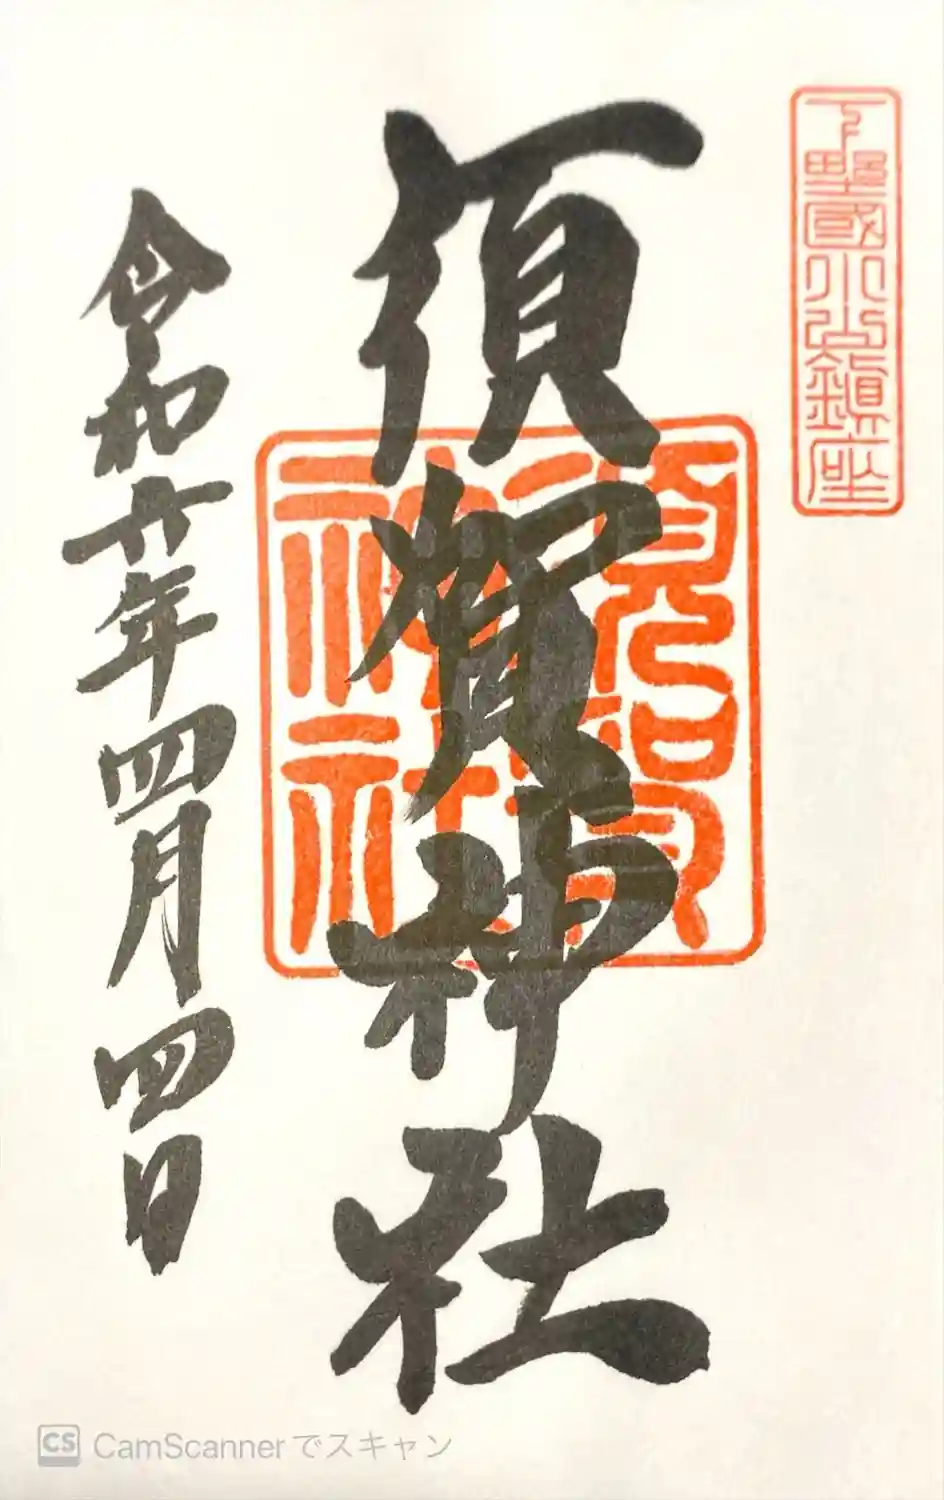 下野國小山鎮座
須賀神社
須賀神社
令和六年四月四日
CS CamScannerでスキャン